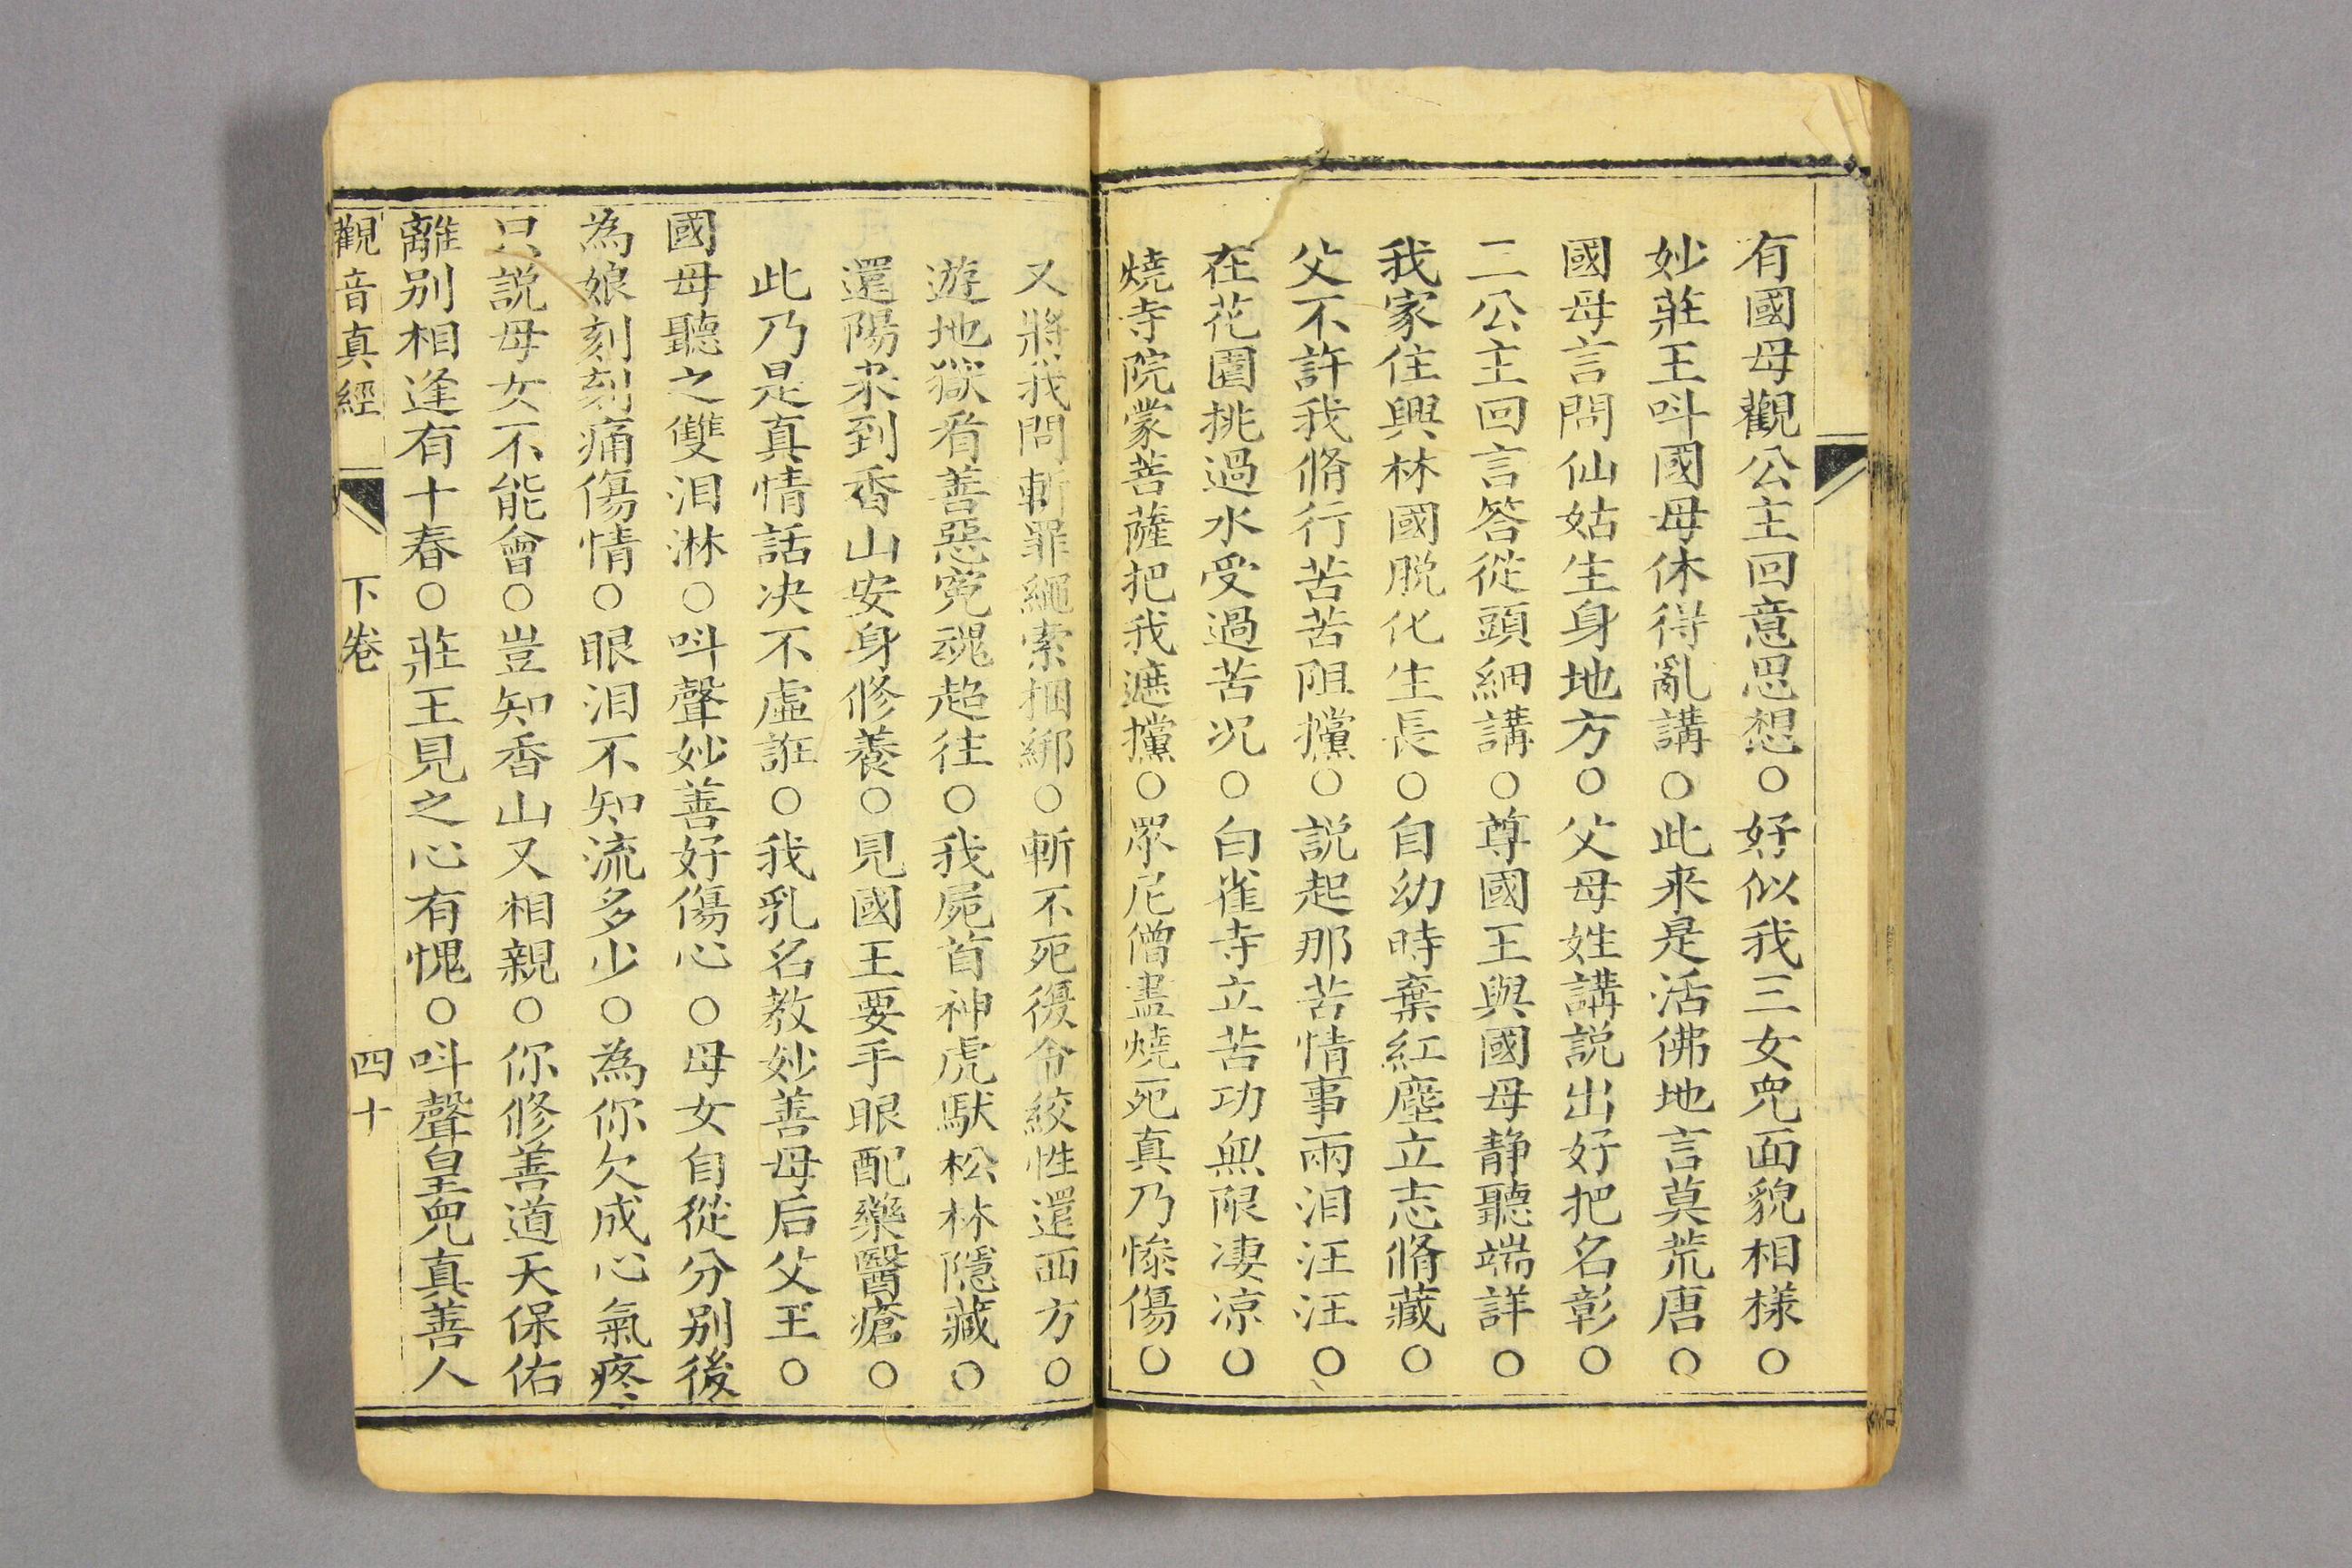 有國母觀公主回意思想○好似我三女兒面貌相樣○
妙莊王呌國母休得亂講○此来是活佛地言莫荒唐○
國母言問仙姑生身地方○父母姓講説出好把名彰○
二公主回言答從頭細講○尊國王與國母静聽端詳○
我家住興林國脱化生長○自幼時棄紅塵立志脩藏○
父不許我脩行苦苦阻攩○説起那苦情事兩泪汪汪○
在花園挑過水受過苦况○白雀寺立苦功無限凄凉○
燒寺院蒙菩薩把我遮攩○眾尼僧盡燒死真乃慘傷○
又將我問斬罪繩索捆綁○斬不死復令絞性還西方○
遊地獄看善惡寃魂超往○我屍首神虎馱松林隱藏○
還陽来到香山安身修養○見國王要手眼配藥醫瘡○
此乃是真情話决不虛誑○我乳名教妙善母后父王○
國母聽之雙泪淋○呌聲妙善好傷心○母女自從分别後
為娘刻刻痛傷情○眼泪不知流多少○為你欠成心氣疼
只説母女不能會○豈知香山又相親○你修善道天保佑
離别相逢有十春○莊王見之心有愧○呌聲皇兒真善人
觀音真經 下卷 四十